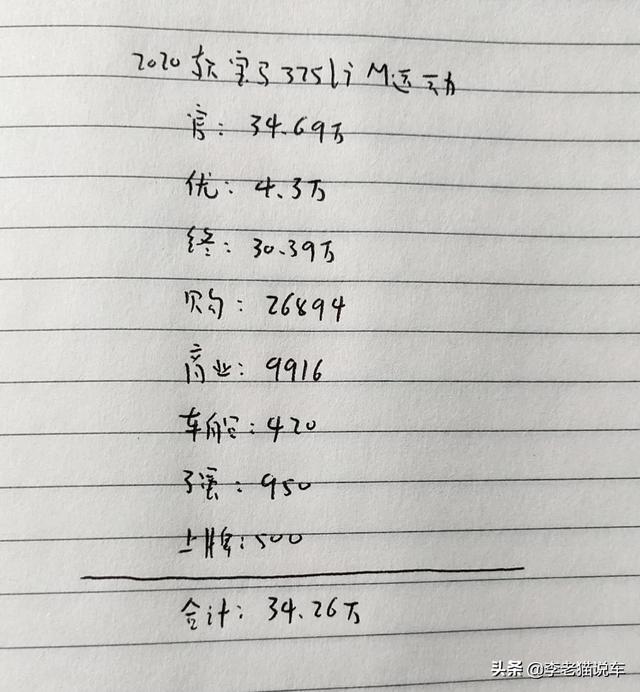 2020款宝马325li M运动
官：34.69万
优：4.3万
终：30.39万
购：26894
商业：9916
车船：420
交强：950
上牌：500
合计：34.26万
头条 @李老猫说车